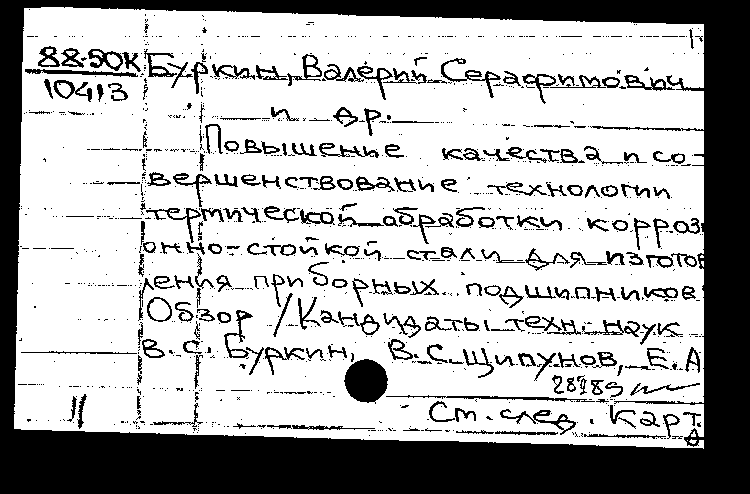 88-50К Буркин, Валерий Серафимович
10413
и др.
Повышение качества и со-
вершенствование технологии
термической обработки корроз
онно-стойкой стали для изготов
ления приборных подшипников:
Обзор / Кандидаты техн. наук
В.С. Буркин, В.С. Щипунов, Е.А
28789
11 См. след. карт.